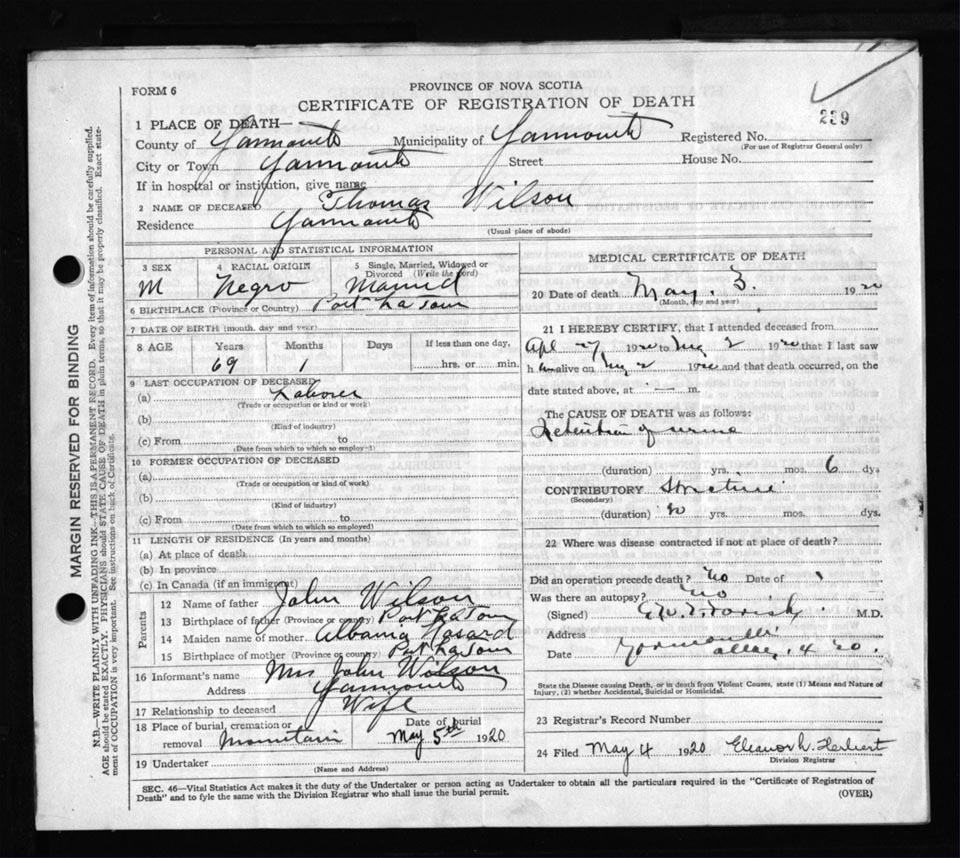 FORM 6
PROVINCE OF NOVA SCOTIA
CERTIFICATE OF REGISTRATION OF DEATH
239
1 PLACE OF DEATH—
County of Yarmouth Municipality of Yarmouth Registered No.
(For use of Registrar General only)
City or Town Yarmouth Street House No.
If in hospital or institution, give name
2 NAME OF DECEASED Thomas Wilson
Residence Yarmouth
(Usual place of abode)
PERSONAL AND STATISTICAL INFORMATION
3 SEX 4 RACIAL ORIGIN 5 Single, Married, Widowed or Divorced (Write the word)
M Negro Married
6 BIRTHPLACE (Province or Country) Port La Tour
7 DATE OF BIRTH (month, day and year)
8 AGE Years Months Days If less than one day,
69 1 hrs. or min.
9 LAST OCCUPATION OF DECEASED
(a) Laborer
(Trade or occupation or kind or work)
(b)
(Kind of industry)
(c) From to
(Date from which to which so employed)
10 FORMER OCCUPATION OF DECEASED
(a)
(Trade or occupation or kind of work)
(b)
(Kind of industry)
(c) From to
(Date from which to which so employed)
11 LENGTH OF RESIDENCE (In years and months)
(a) At place of death
(b) In province
(c) In Canada (if an immigrant)
Parents
12 Name of father John Wilson
13 Birthplace of father (Province or country) Port La Tour
14 Maiden name of mother
15 Birthplace of mother (Province or country) Port La Tour
16 Informant's name Mrs John Wilson
Address Yarmouth
17 Relationship to deceased Wife
18 Place of burial, cremation or removal Mountain Date of burial May 5th 1920
19 Undertaker
(Name and Address)
MEDICAL CERTIFICATE OF DEATH
20 Date of death May. 3. 1920
(Month, day and year)
21 I HEREBY CERTIFY, that I attended deceased from
Apl 27 1920 to May 2 1920 that I last saw
h im alive on May 2 1920 and that death occurred, on the
date stated above, at — m.
The CAUSE OF DEATH was as follows:
Retention of urine
(duration) yrs. mos. 6 dys
CONTRIBUTORY Stricture
(Secondary)
(duration) 20 yrs. mos. dys.
22 Where was disease contracted if not at place of death?
Did an operation precede death? No Date of
Was there an autopsy? No
(Signed) M.D.
Address Yarmouth
Date 4 20.
State the Disease causing Death, or in death from Violent Causes, state (1) Means and Nature of
Injury, (2) whether Accidental, Suicidal or Homicidal.
23 Registrar's Record Number
24 Filed May 4 1920 Eleanor L. Herbert
Division Registrar
SEC. 46—Vital Statistics Act makes it the duty of the Undertaker or person acting as Undertaker to obtain all the particulars required in the "Certificate of Registration of
Death" and to fyle the same with the Division Registrar who shall issue the burial permit.
(OVER)
MARGIN RESERVED FOR BINDING
N.B.—WRITE PLAINLY WITH UNFADING INK—THIS IS A PERMANENT RECORD. Every item of information should be carefully supplied.
AGE should be stated EXACTLY. PHYSICIANS should STATE CAUSE OF DEATH in plain terms, so that it may be properly classified. Exact state-
ment of OCCUPATION is very important. See instructions on back of Certificate.